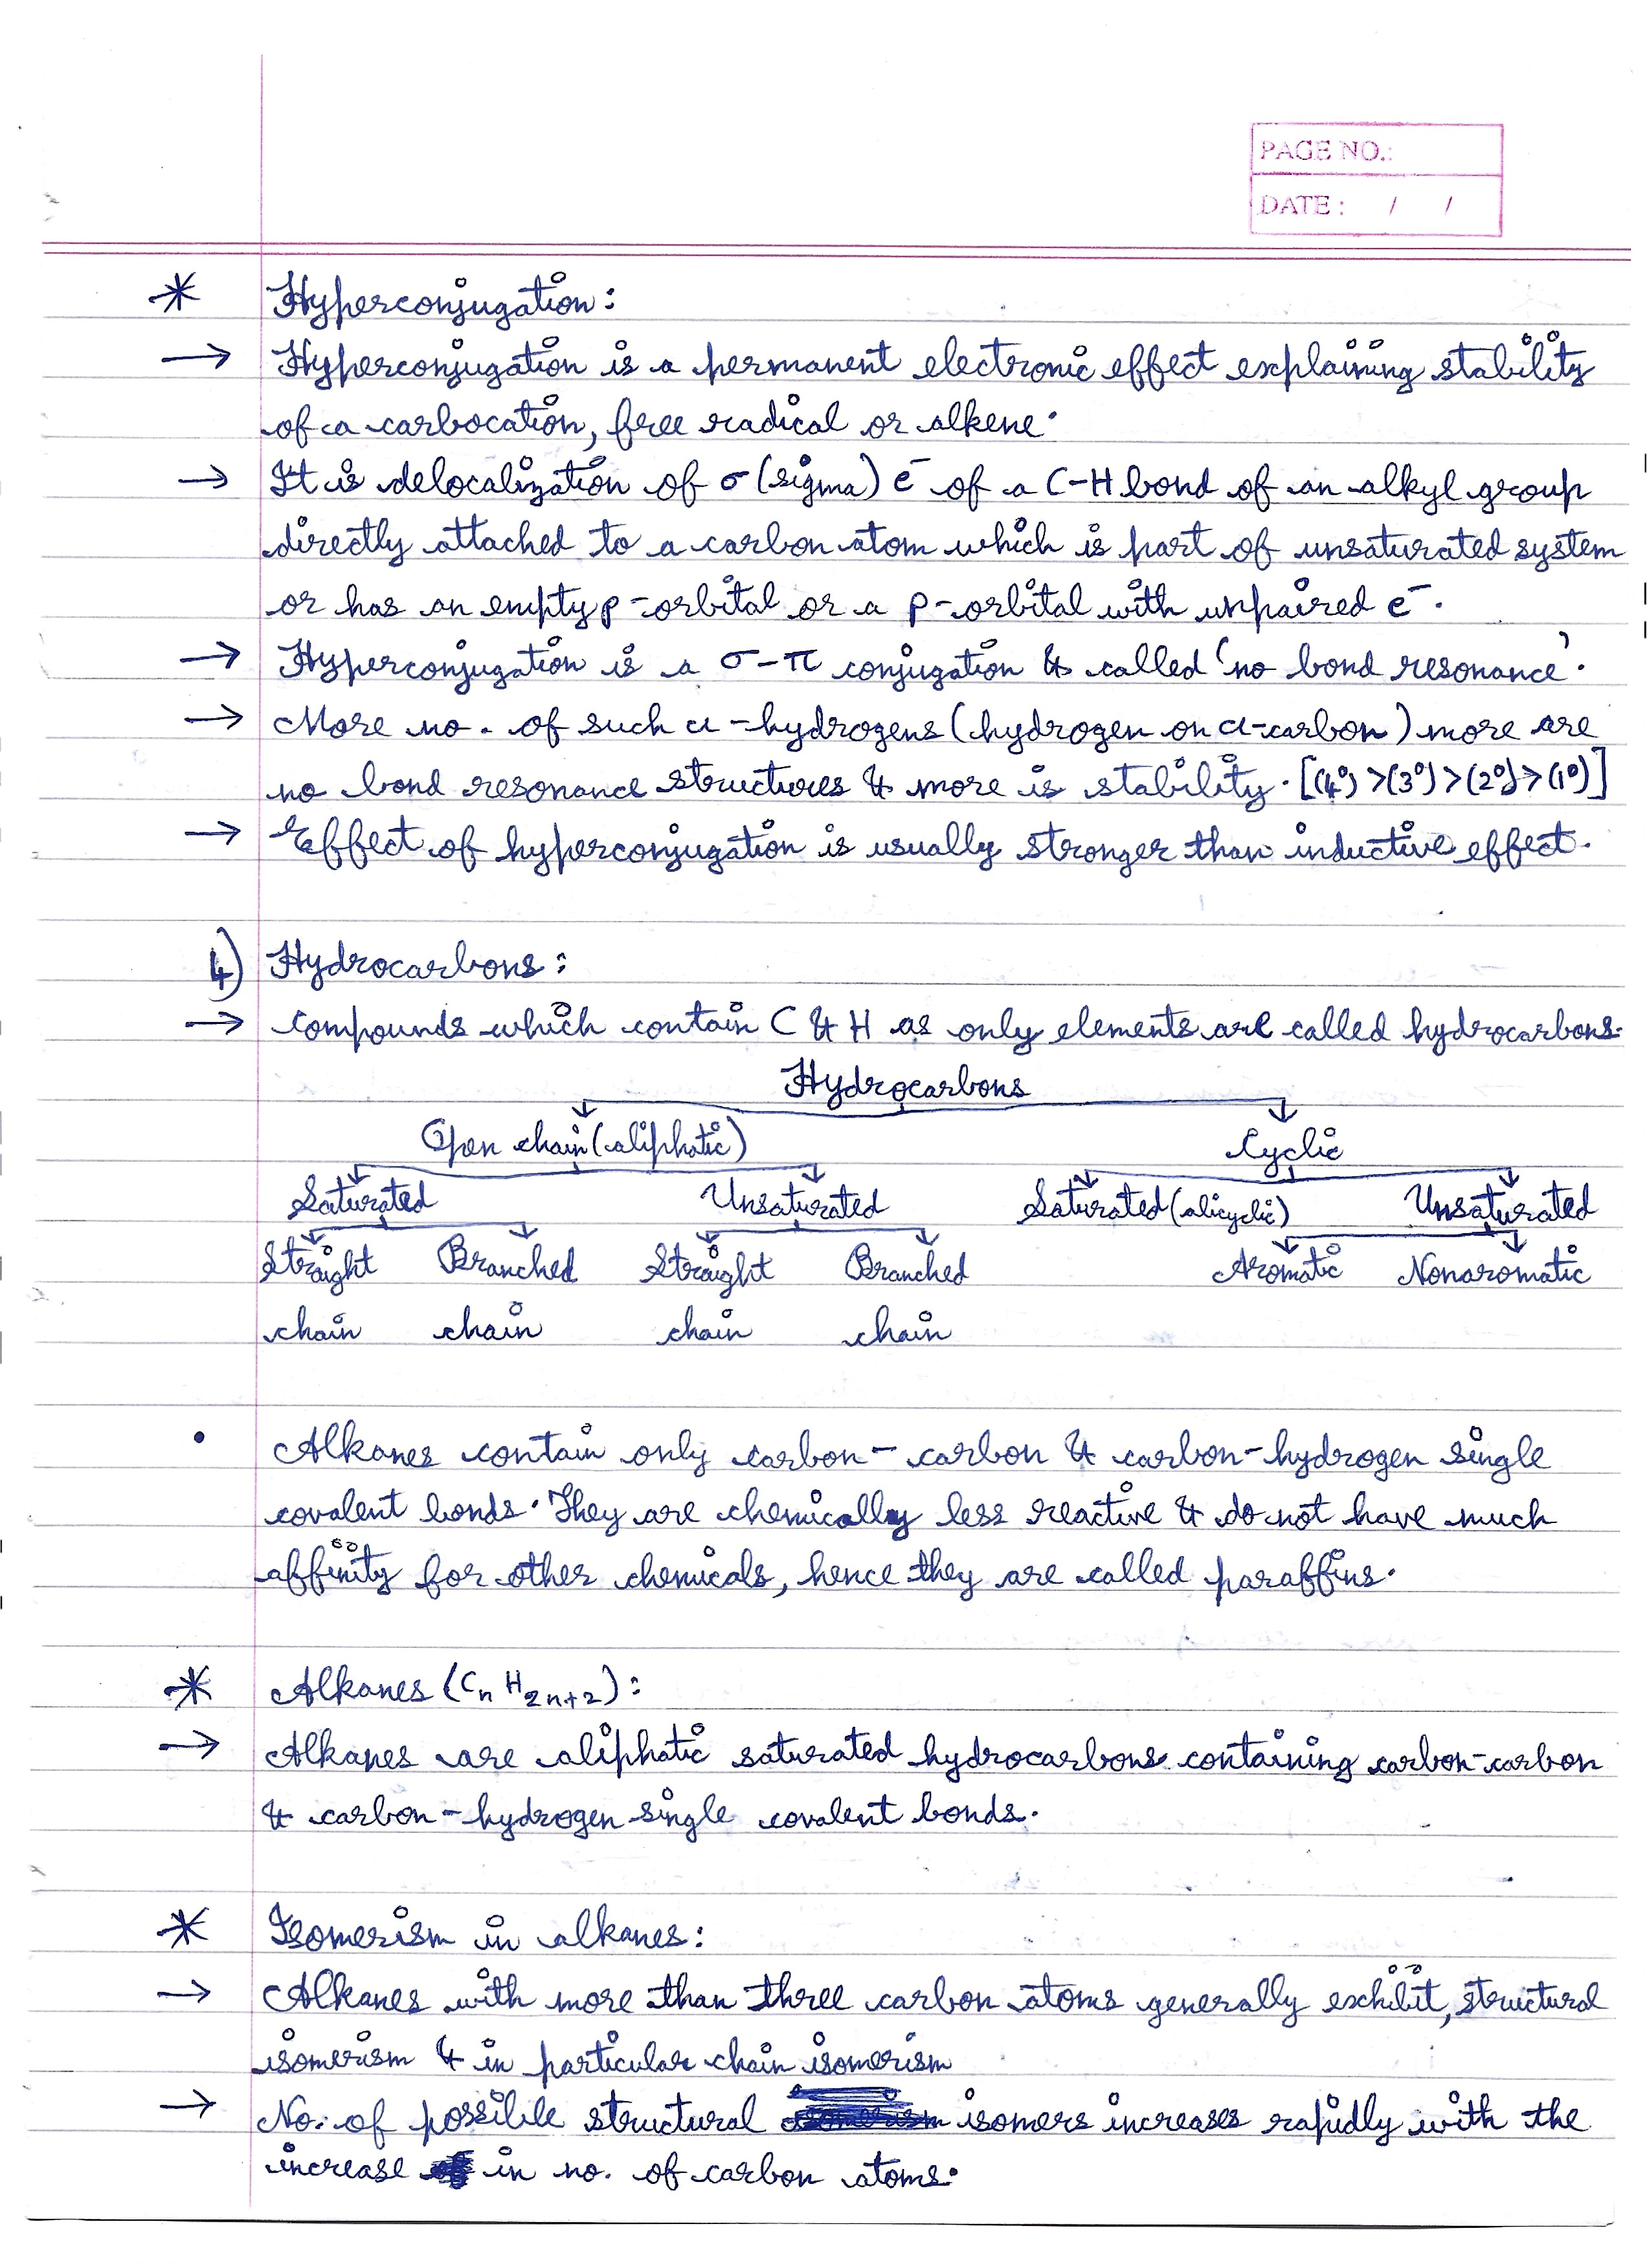 PAGE NO.:
DATE : / /
* Hyperconjugation :
→ Hyperconjugation is a permanent electronic effect explaining stability
of a carbocation, free radical or alkene.
→ It is delocalization of σ (sigma) e⁻ of a C-H bond of an alkyl group
directly attached to a carbon atom which is part of unsaturated system
or has an empty p-orbital or a p-orbital with unpaired e⁻.
→ Hyperconjugation is a σ-π conjugation & called 'no bond resonance'.
→ More no. of such α-hydrogens (hydrogen on α-carbon) more are
no bond resonance structures & more is stability. [(4°) >(3°) >(2°) >(1°)]
→ Effect of hyperconjugation is usually stronger than inductive effect.
4) Hydrocarbons :
→ Compounds which contain C & H as only elements are called hydrocarbons.
Hydrocarbons
Open chain (aliphatic) Cyclic
Saturated Unsaturated Saturated (alicyclic) Unsaturated
Straight Branched Straight Branched Aromatic Nonaromatic
chain chain chain chain
• Alkanes contain only carbon-carbon & carbon-hydrogen single
covalent bonds. They are chemically less reactive & do not have much
affinity for other chemicals, hence they are called paraffins.
* Alkanes (CnH2n+2) :
→ Alkanes are aliphatic saturated hydrocarbons containing carbon-carbon
& carbon-hydrogen single covalent bonds.
* Isomerism in alkanes :
→ Alkanes with more than three carbon atoms generally exhibit, structural
isomerism & in particular chain isomerism
→ No. of possible structural isomers increases rapidly with the
increase in no. of carbon atoms.